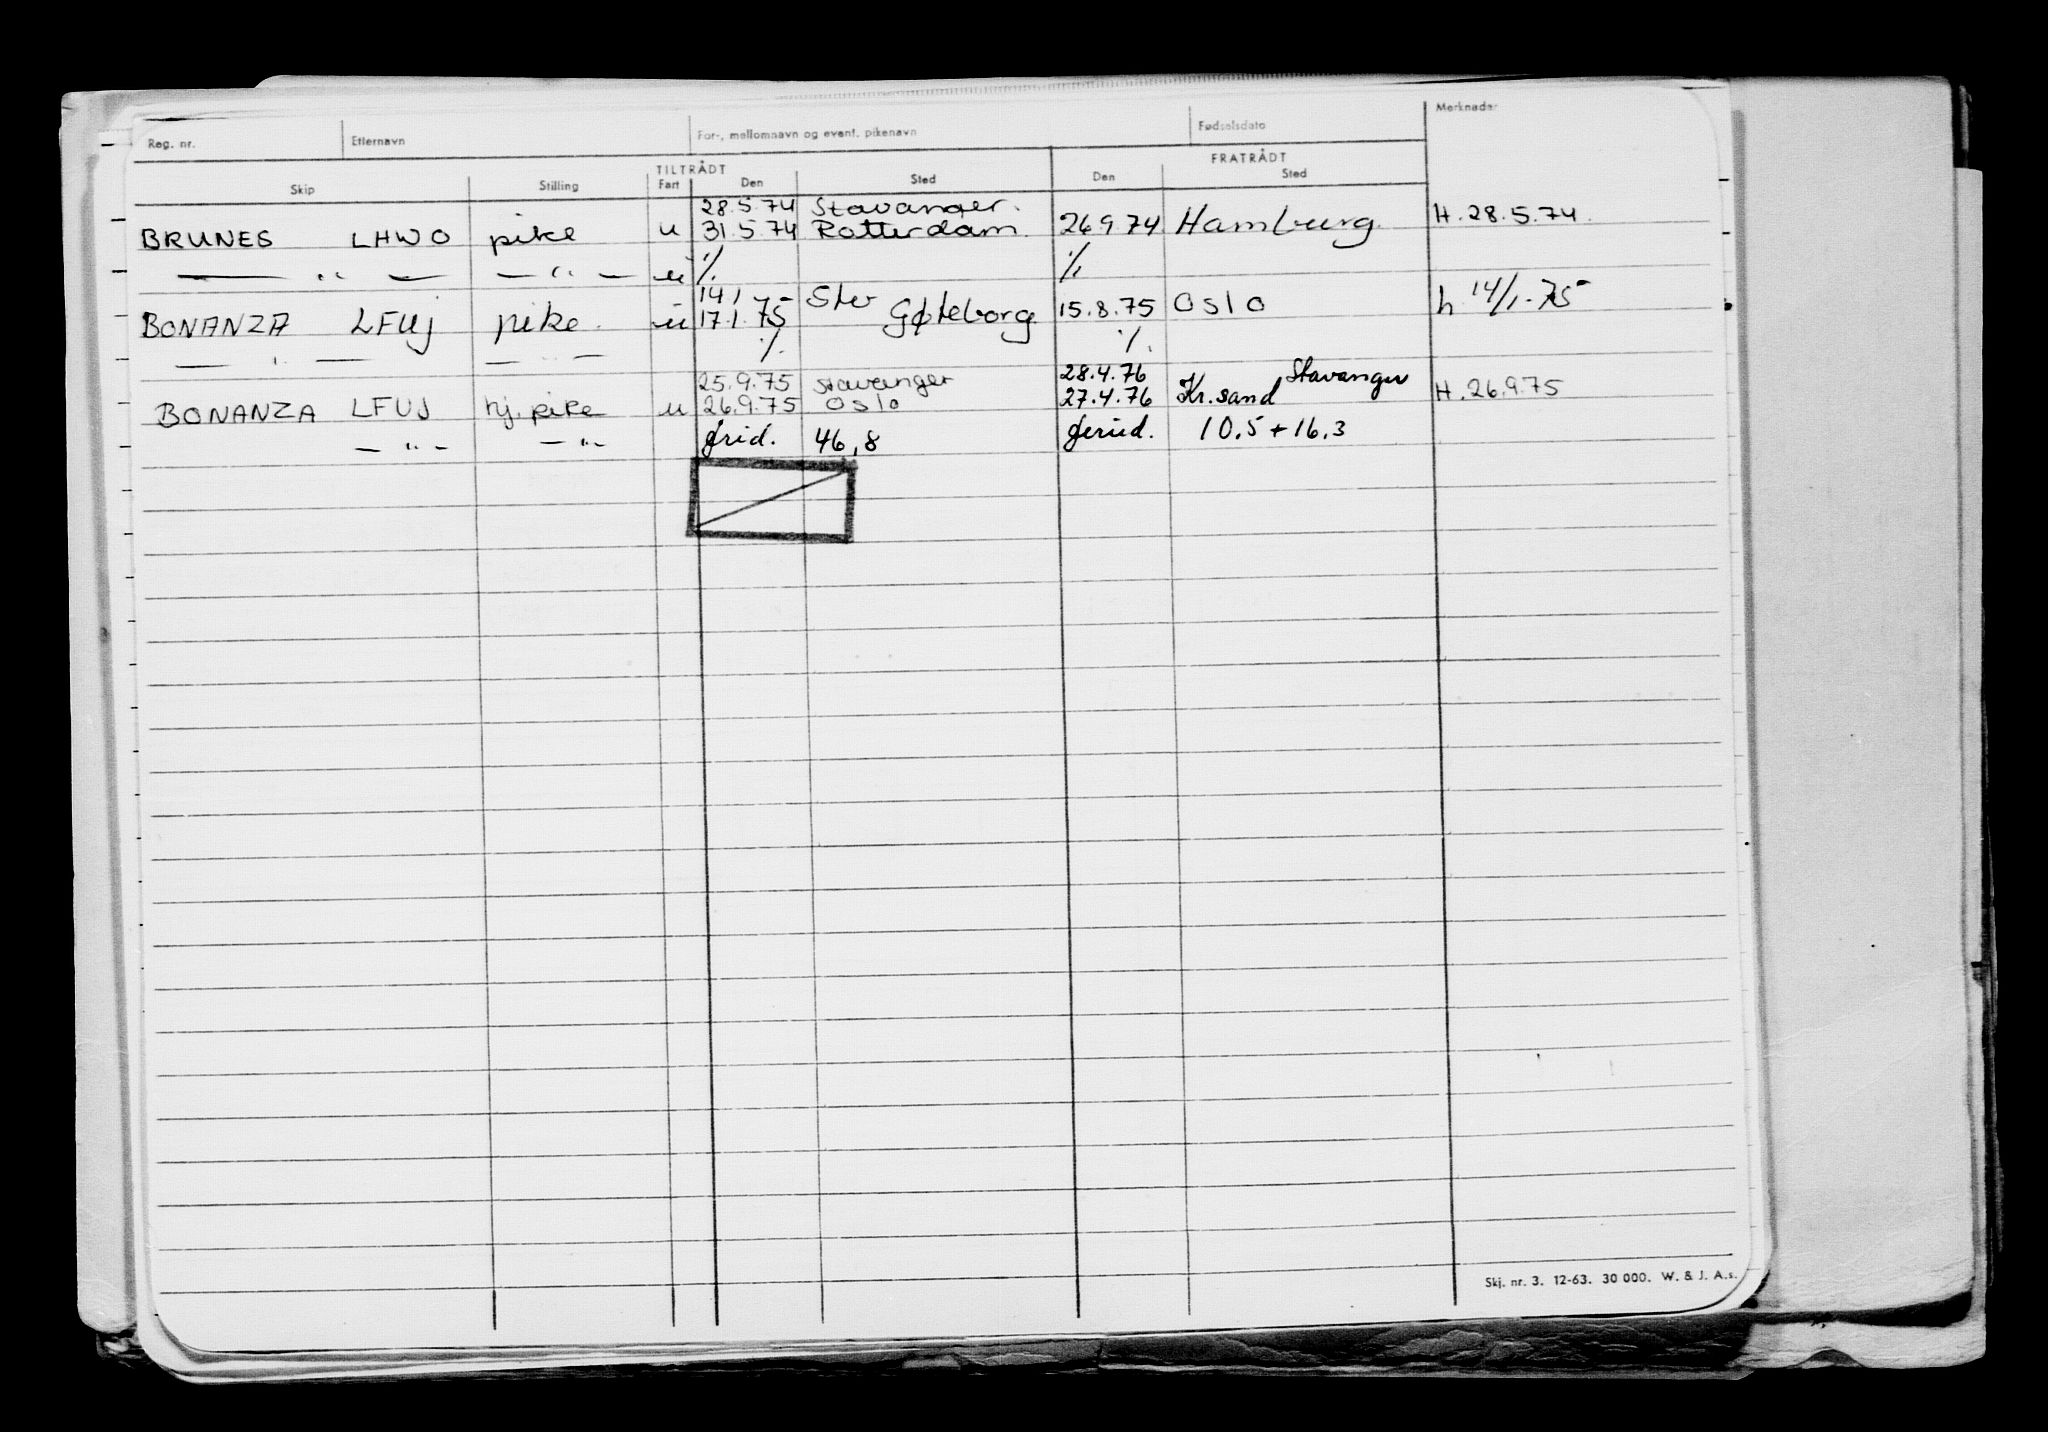 Reg. nr. Etternavn For-, mellomnavn og event. pikenavn Fødselsdato Merknader
TILTRÅDT FRATRÅDT
Skip Stilling Fart Den Sted Den Sted
28.5.74 Stavanger.
BRUNES LHWO pike u 31.5.74 Rotterdam. 26.9.74 Hamburg. H. 28.5.74.
— " — — " — u ·/. ·/.
14.1 Stvr
BONANZA LFUJ pike. u 17.1.75 Gøteborg 15.8.75 OSLO h. 14/1-75
— " — — " — ·/. ·/.
25.9.75 Stavanger 28.4.76 Stavanger
BONANZA LFUJ hj. pike u 26.9.75 Oslo 27.4.76 Kr.sand H. 26.9.75
— " — — " — 46,8 10.5 + 16.3
Skj. nr. 3. 12-63. 30 000. W. & J. A.s.